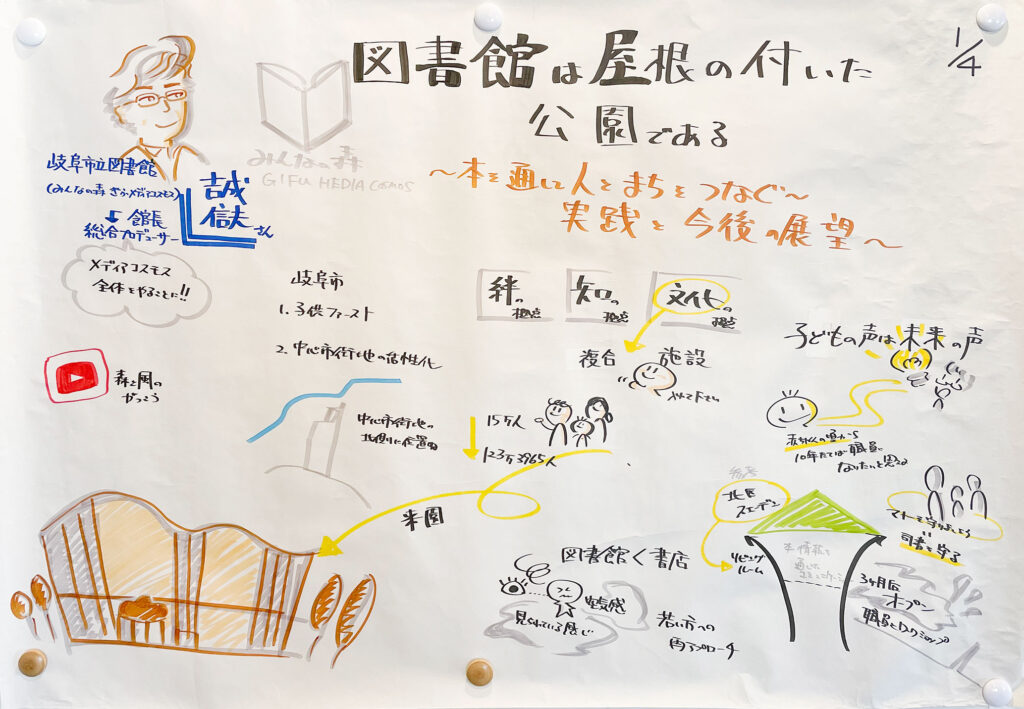 図書館は屋根の付いた
公園である
1/4
〜本を通じ人とまちをつなぐ〜
実践と今後の展望〜
みんなの森
GIFU MEDIA COSMOS
岐阜市立図書館
(みんなの森 ぎふメディアコスモス)
館長
総合プロデューサー
誠
信夫さん
メディアコスモス
全体をやることに!!
森と風の
がっこう
岐阜市
1. 子供ファースト
2. 中心市街地の活性化
中心市街地の
北側に位置
絆の拠点
知の拠点
文化の拠点
複合 施設
15万人
123万3965人
来園
子どもの声は未来の声
赤ちゃんの頃から
10年たてば職員に
なりたいと思う
マナーを守りましょう
司書を守る
参考
北国
リビング
ルーム
図書館く書店
見られている感じ
若い方への
再アプローチ
3ヶ月后
オープン
職員とワークショップ